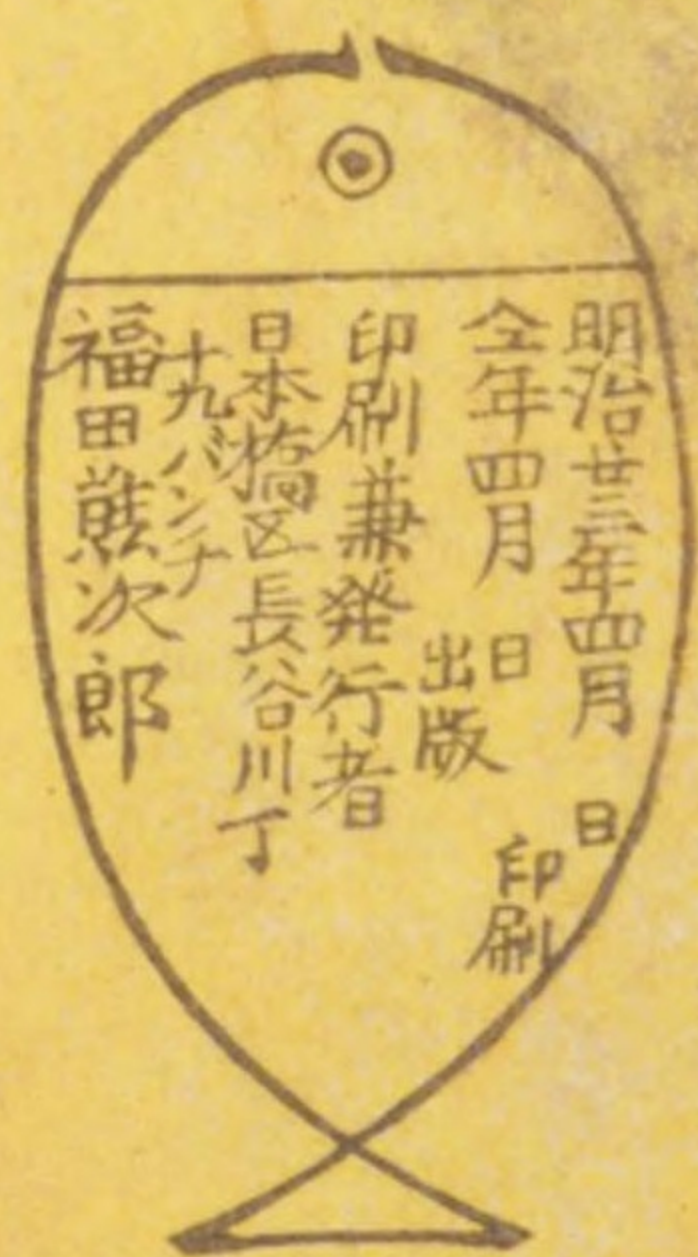 明治廿三年四月　日
印刷
仝年四月　日
出版
印刷兼発行者
日本橋区長谷川丁
十九バンチ
福田熊次郎